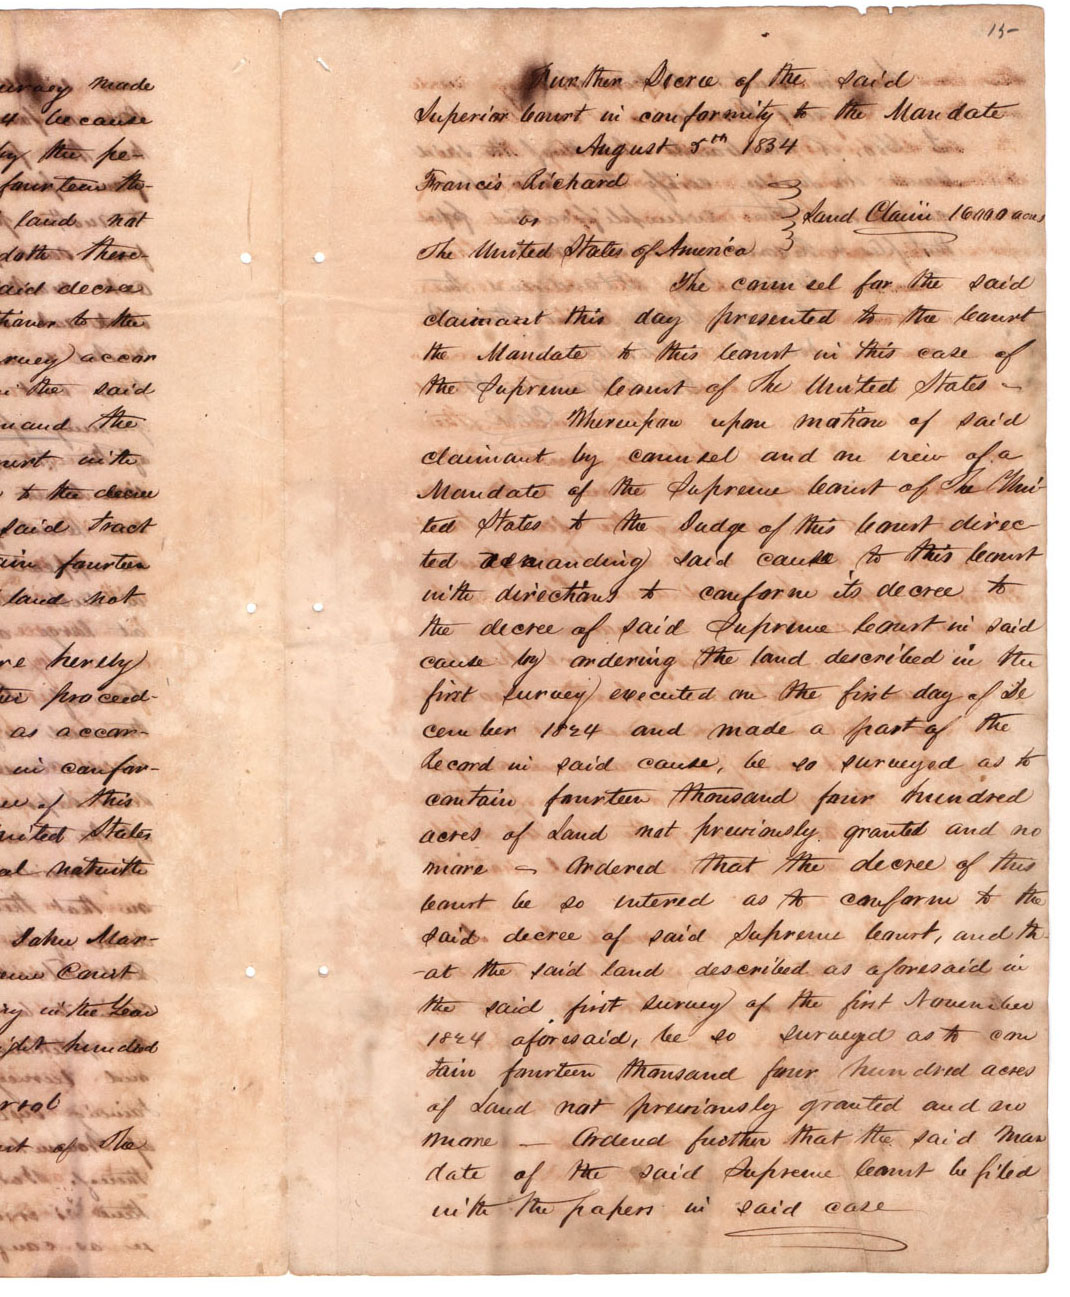 urvey made
4 because
by the pe-
fourteen th-
land not
doth there-
said decree
tioner to the
rvey) accor
in the said
mand the
urt with
to the decree
said tract
ain fourteen
land not
re hereby
proceed-
as accor-
in confor-
of this
nited States
John Mar-
eme Court
ry in the Year
ight hundred
rrol
of The
15-
Further Decree of the said
Superior Court in conformity to the Mandate
August 5th 1834
Francis Richard
vs
Land Claim 16000 acres
The United States of America
The counsel for the said
claimant this day presented to the Court
the Mandate to this Court in this case of
the Supreme Court of The United States -
Whereupon upon motion of said
claimant by counsel and on view of a
Mandate of the Supreme Court of The Uni-
ted States to the Judge of this Court direc-
ted remanding said cause to this Court
with directions to conform its decree to
the decree of said Supreme Court in said
cause by ordering the land described in the
first survey executed on the first day of De
cember 1824 and made a part of the
Record in said cause, be so surveyed as to
contain fourteen thousand four hundred
acres of Land not previously granted and no
more - Ordered that the decree of this
Court be so intered as to conform to the
said decree of said Supreme Court, and th-
-at the said land described as aforesaid in
the said first survey of the first November
1824 aforesaid, be so surveyed as to con
tain fourteen thousand four hundred acres
of Land not previously granted and no
more - Ordered further that the said Man
date of the said Supreme Court be filed
with the papers in said case